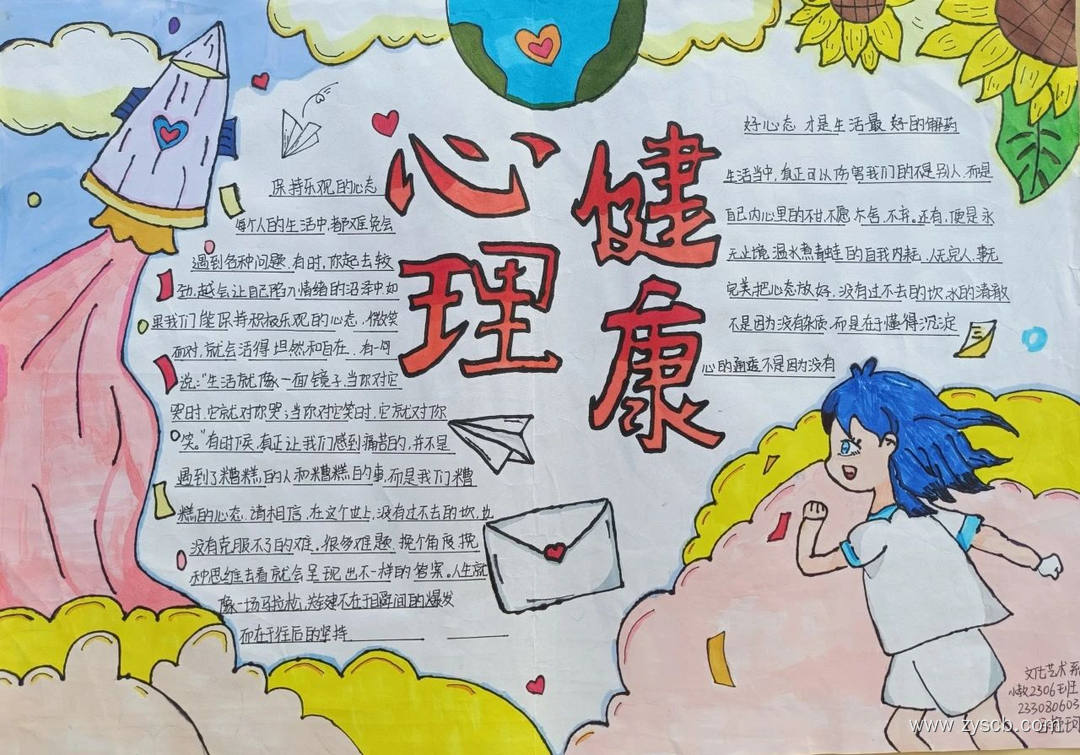 心理
健康
保持乐观的心态
每个人的生活中,都难免会
遇到各种问题.有时,你越去较
劲,越会让自己陷入情绪的沼泽中.如
果我们能保持积极乐观的心态,微笑
面对,就会活得坦然和自在.有一句
说:"生活就像一面镜子,当你对它
哭时,它就对你哭;当你对它笑时,它就对你
笑。"有时候,真正让我们感到痛苦的,并不是
遇到了糟糕的人和糟糕的事,而是我们糟
糕的心态.请相信,在这个世上,没有过不去的坎,也
没有克服不了的难。很多难题,换个角度,换
种思维去看就会呈现出不一样的答案。人生就
像一场马拉松,关键不在于瞬间的爆发
而在于往后的坚持
好心态 才是生活最好的解药
生活当中,真正可以伤害我们的不是别人,而是
自己内心里的不甘,不愿,不舍,不弃。还有,便是永
无止境,温水煮青蛙的自我内耗,人无完人,事无
完美,把心态放好,没有过不去的坎,水的清澈
不是因为没有杂质,而是在于懂得沉淀
心的通透不是因为没有
文化艺术系
小教2306班
233080603
www.zyscb.com